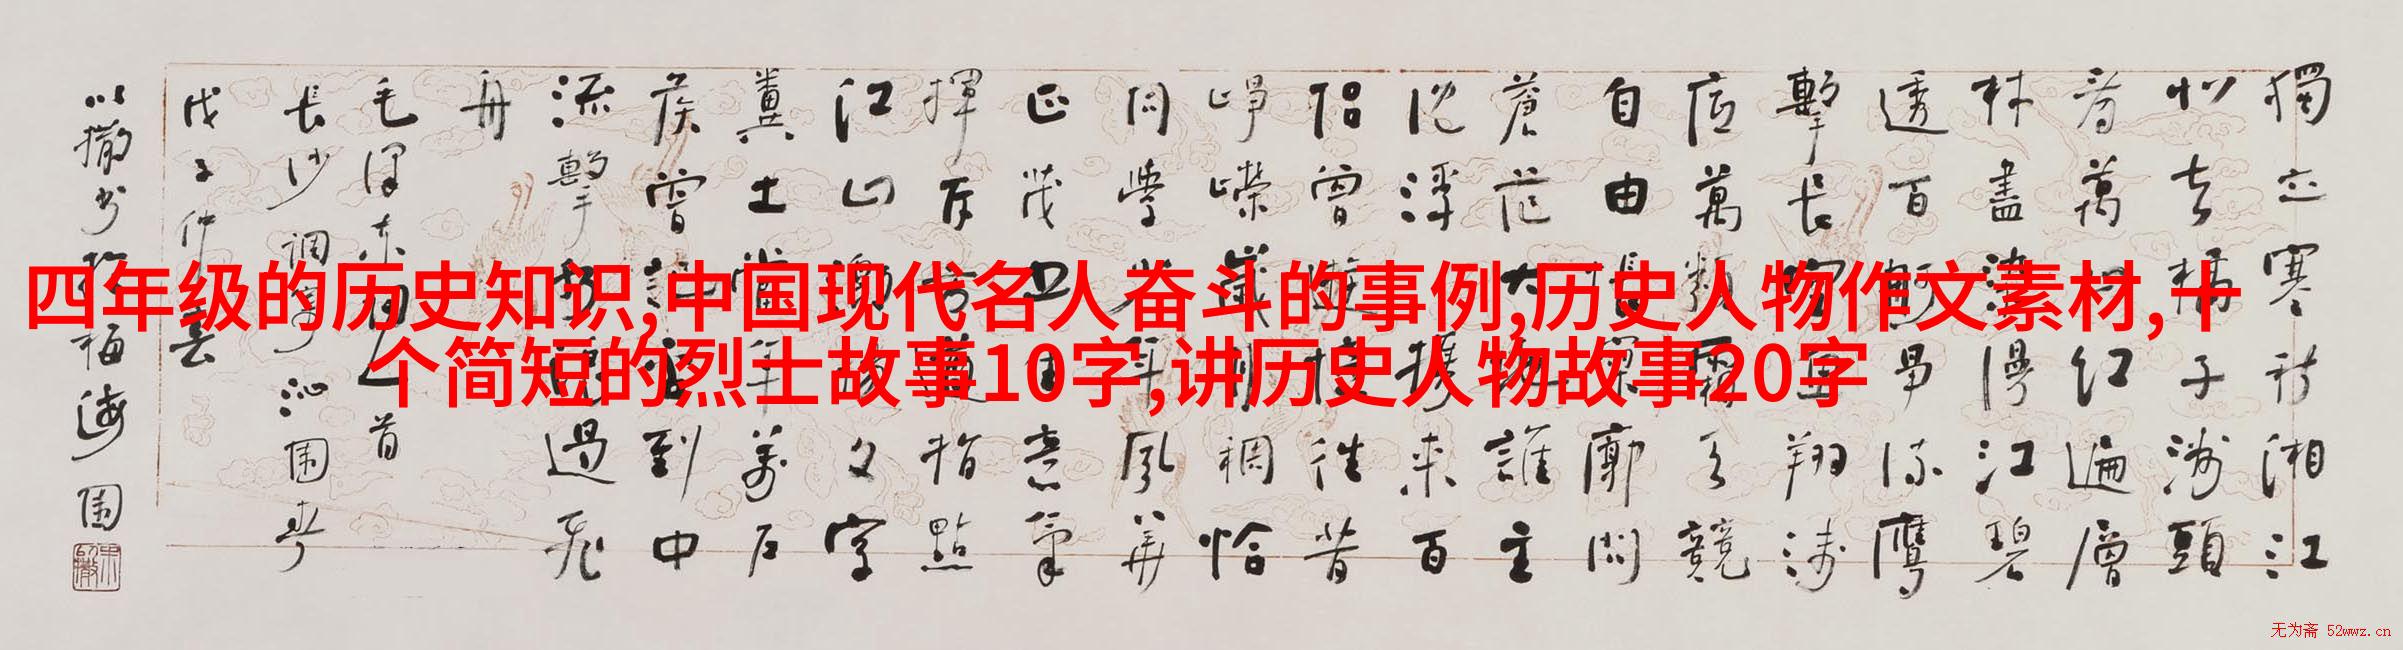 四年级的历史知识,中国现代名人奋斗的事例,历史人物作文素材,十
个简短的烈士故事10字,讲历史人物故事20字
獨立寒秋湘江
北去橘子洲頭
看萬山红遍層
林盡染漫江碧
透百舸争流鷹
擊長空鱼翔淺
底萬類霜天競
自由悵寥廓問
蒼茫大地誰主
沈浮携来百
侣曾遊憶往昔
崢嶸歲月稠恰
同學少年風華
正茂書生意氣
揮斥方遒指點
江山激揚文字
糞土當年萬户
侯曾記否到中
流擊水浪遏飛
舟
毛澤东詞一首
長沙 調寄沁園春
戊子仲春
以撒书於福海園
无为斋 52wwz.cn